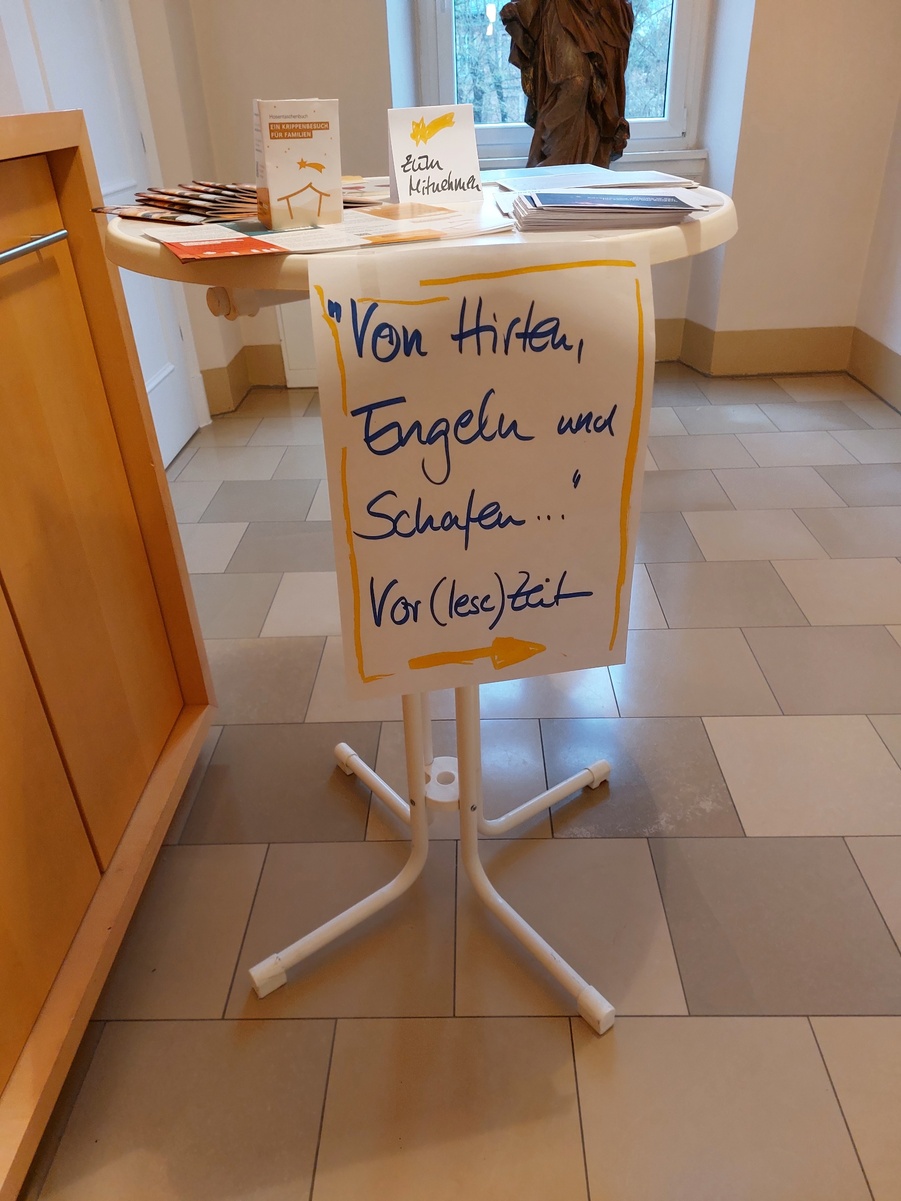 EIN KRIPPENBESUCH
FÜR FAMILIEN
Zum
Mitnehmen
"Von Hirten,
Engeln und
Schafen..."
Vor(lese)Zeit